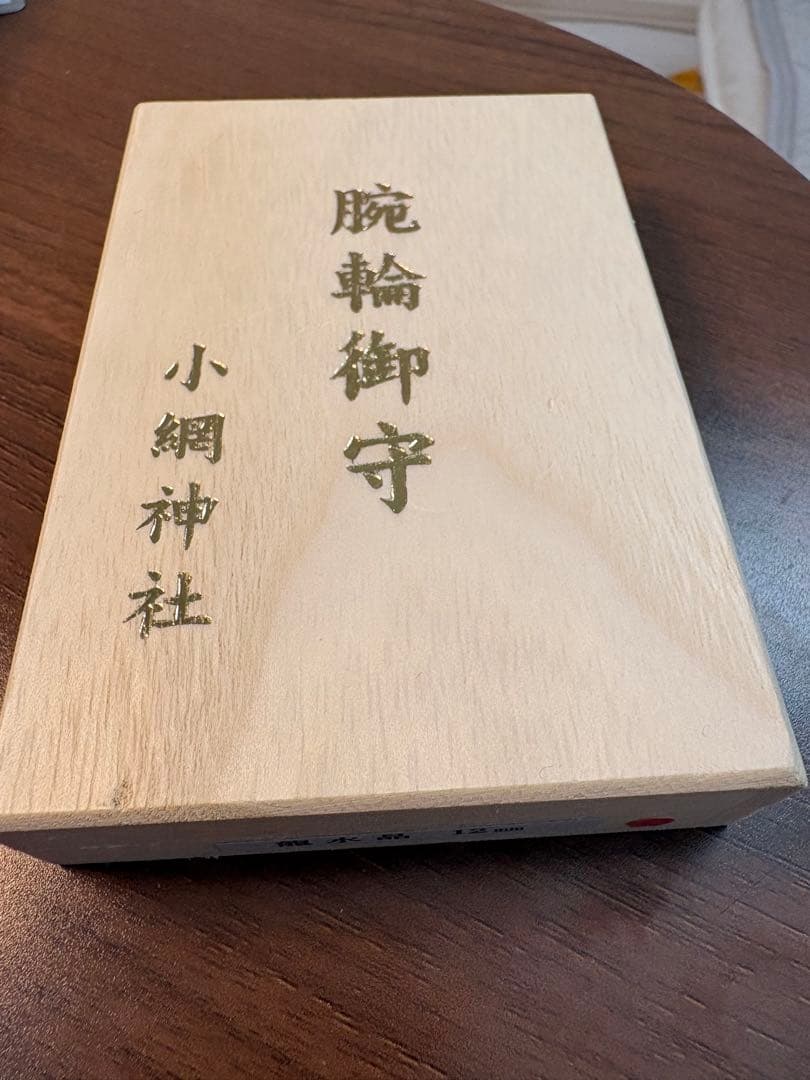 腕輪御守
小網神社
龍水晶 12mm